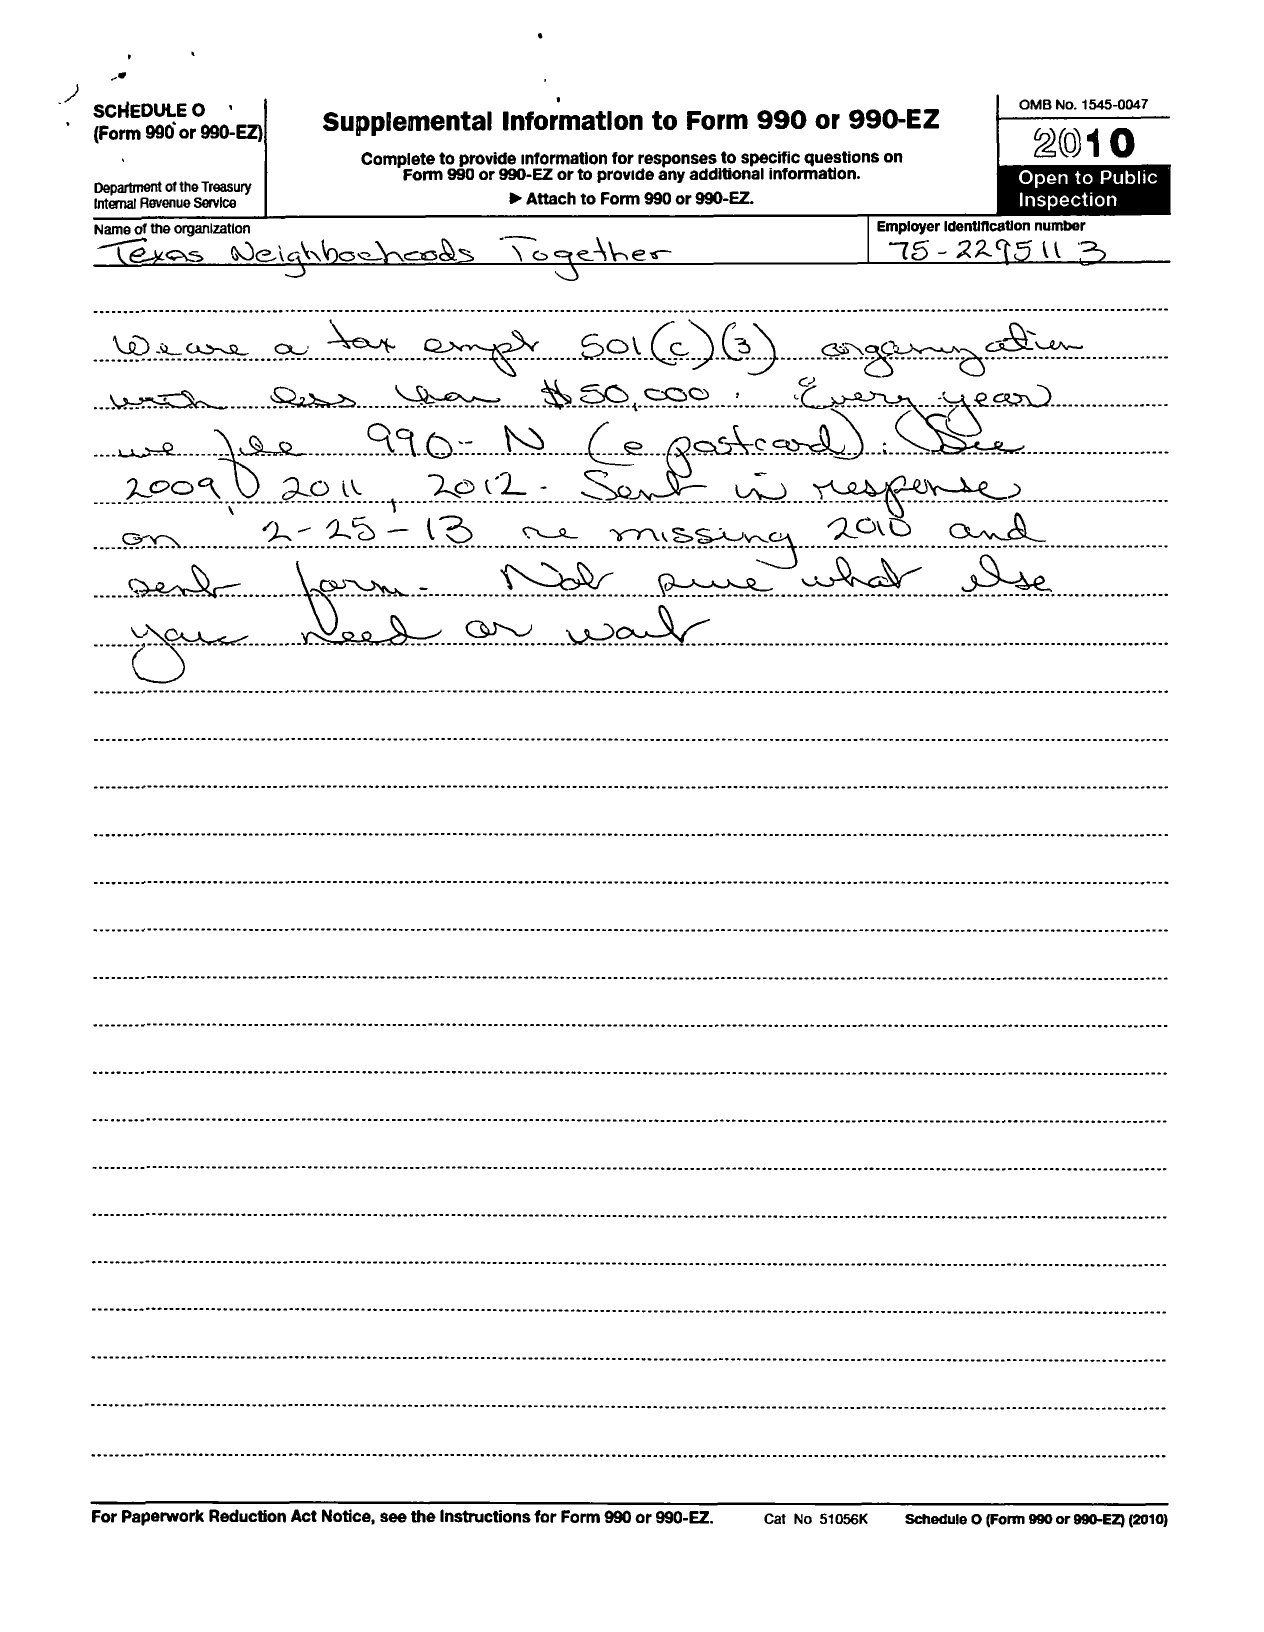 SCHEDULE O
(Form 990 or 990-EZ)
Department of the Treasury
Internal Revenue Service
Supplemental Information to Form 990 or 990-EZ
Complete to provide information for responses to specific questions on
Form 990 or 990-EZ or to provide any additional information.
▶ Attach to Form 990 or 990-EZ.
OMB No. 1545-0047
2010
Open to Public
Inspection
Name of the organization
Texas Neighborhoods Together
Employer identification number
75-2295113
We are a tax empt 501(c)(3) organization
with less than $50,000. Every year
we file 990-N (e postcard). (See
2009, 2011, 2012. Sent in response
on 2-25-13 re missing 2010 and
sent form. Not sure what else
you need or want
For Paperwork Reduction Act Notice, see the Instructions for Form 990 or 990-EZ.
Cat No 51056K
Schedule O (Form 990 or 990-EZ) (2010)